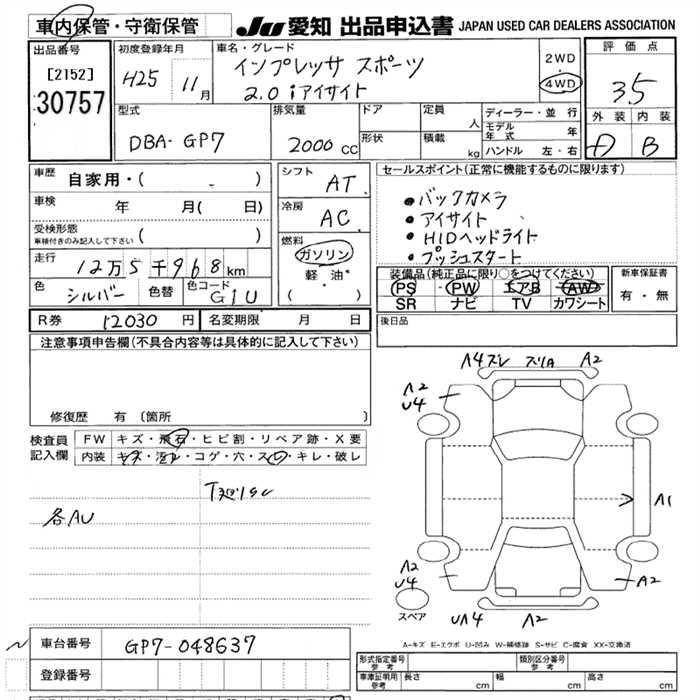 車内保管・守衛保管
JU 愛知 出品申込書 JAPAN USED CAR DEALERS ASSOCIATION
出品番号
[2152]
30757
初度登録年月
H25 年 11月
車名・グレード
インプレッサ スポーツ
2.0 iアイサイト
2WD
4WD
評価点
3.5
外装 内装
D B
型式
DBA-GP7
排気量
2000 cc
ドア
形状
定員
人
積載
kg
ディーラー・並行
モデル年式 年
ハンドル 左・右
車歴 自家用・( )
車検 年 月( 日)
受検形態
車検付きのみ記入して下さい ( )
走行 12万5千968km
色 シルバー 色替 色コード G1U
シフト AT
冷房 AC
燃料
ガソリン
軽油
( ・ )
セールスポイント(正常に機能するものに限ります)
●バックカメラ
●アイサイト
●HIDヘッドライト
●プッシュスタート
装備品(純正品に限り○をつけてください)
PS PW エアB AW
SR ナビ TV カワシート
新車保証書
有・無
R券 12030 円 名変期限 月 日
後日品
注意事項申告欄(不具合内容等は具体的に記入して下さい)
修復歴 有 〔箇所
検査員記入欄
FW キズ・飛石・ヒビ割・リペア跡・X要
内装 キズ・汚れ・コゲ・穴・スレ・キレ・破レ
各AU
A4 スレ スリA A2
A2
U4
A1
A2
U4
A2
スペア
UA4 A2
A-キズ E-エクボ U-凹み W-補修跡 S-サビ C-腐食 XX-交換済
車台番号 GP7-048637
登録番号
形式指定番号
参考
類別区分番号
参考
車庫証明用
参考
長さ cm 幅 cm 高さ cm